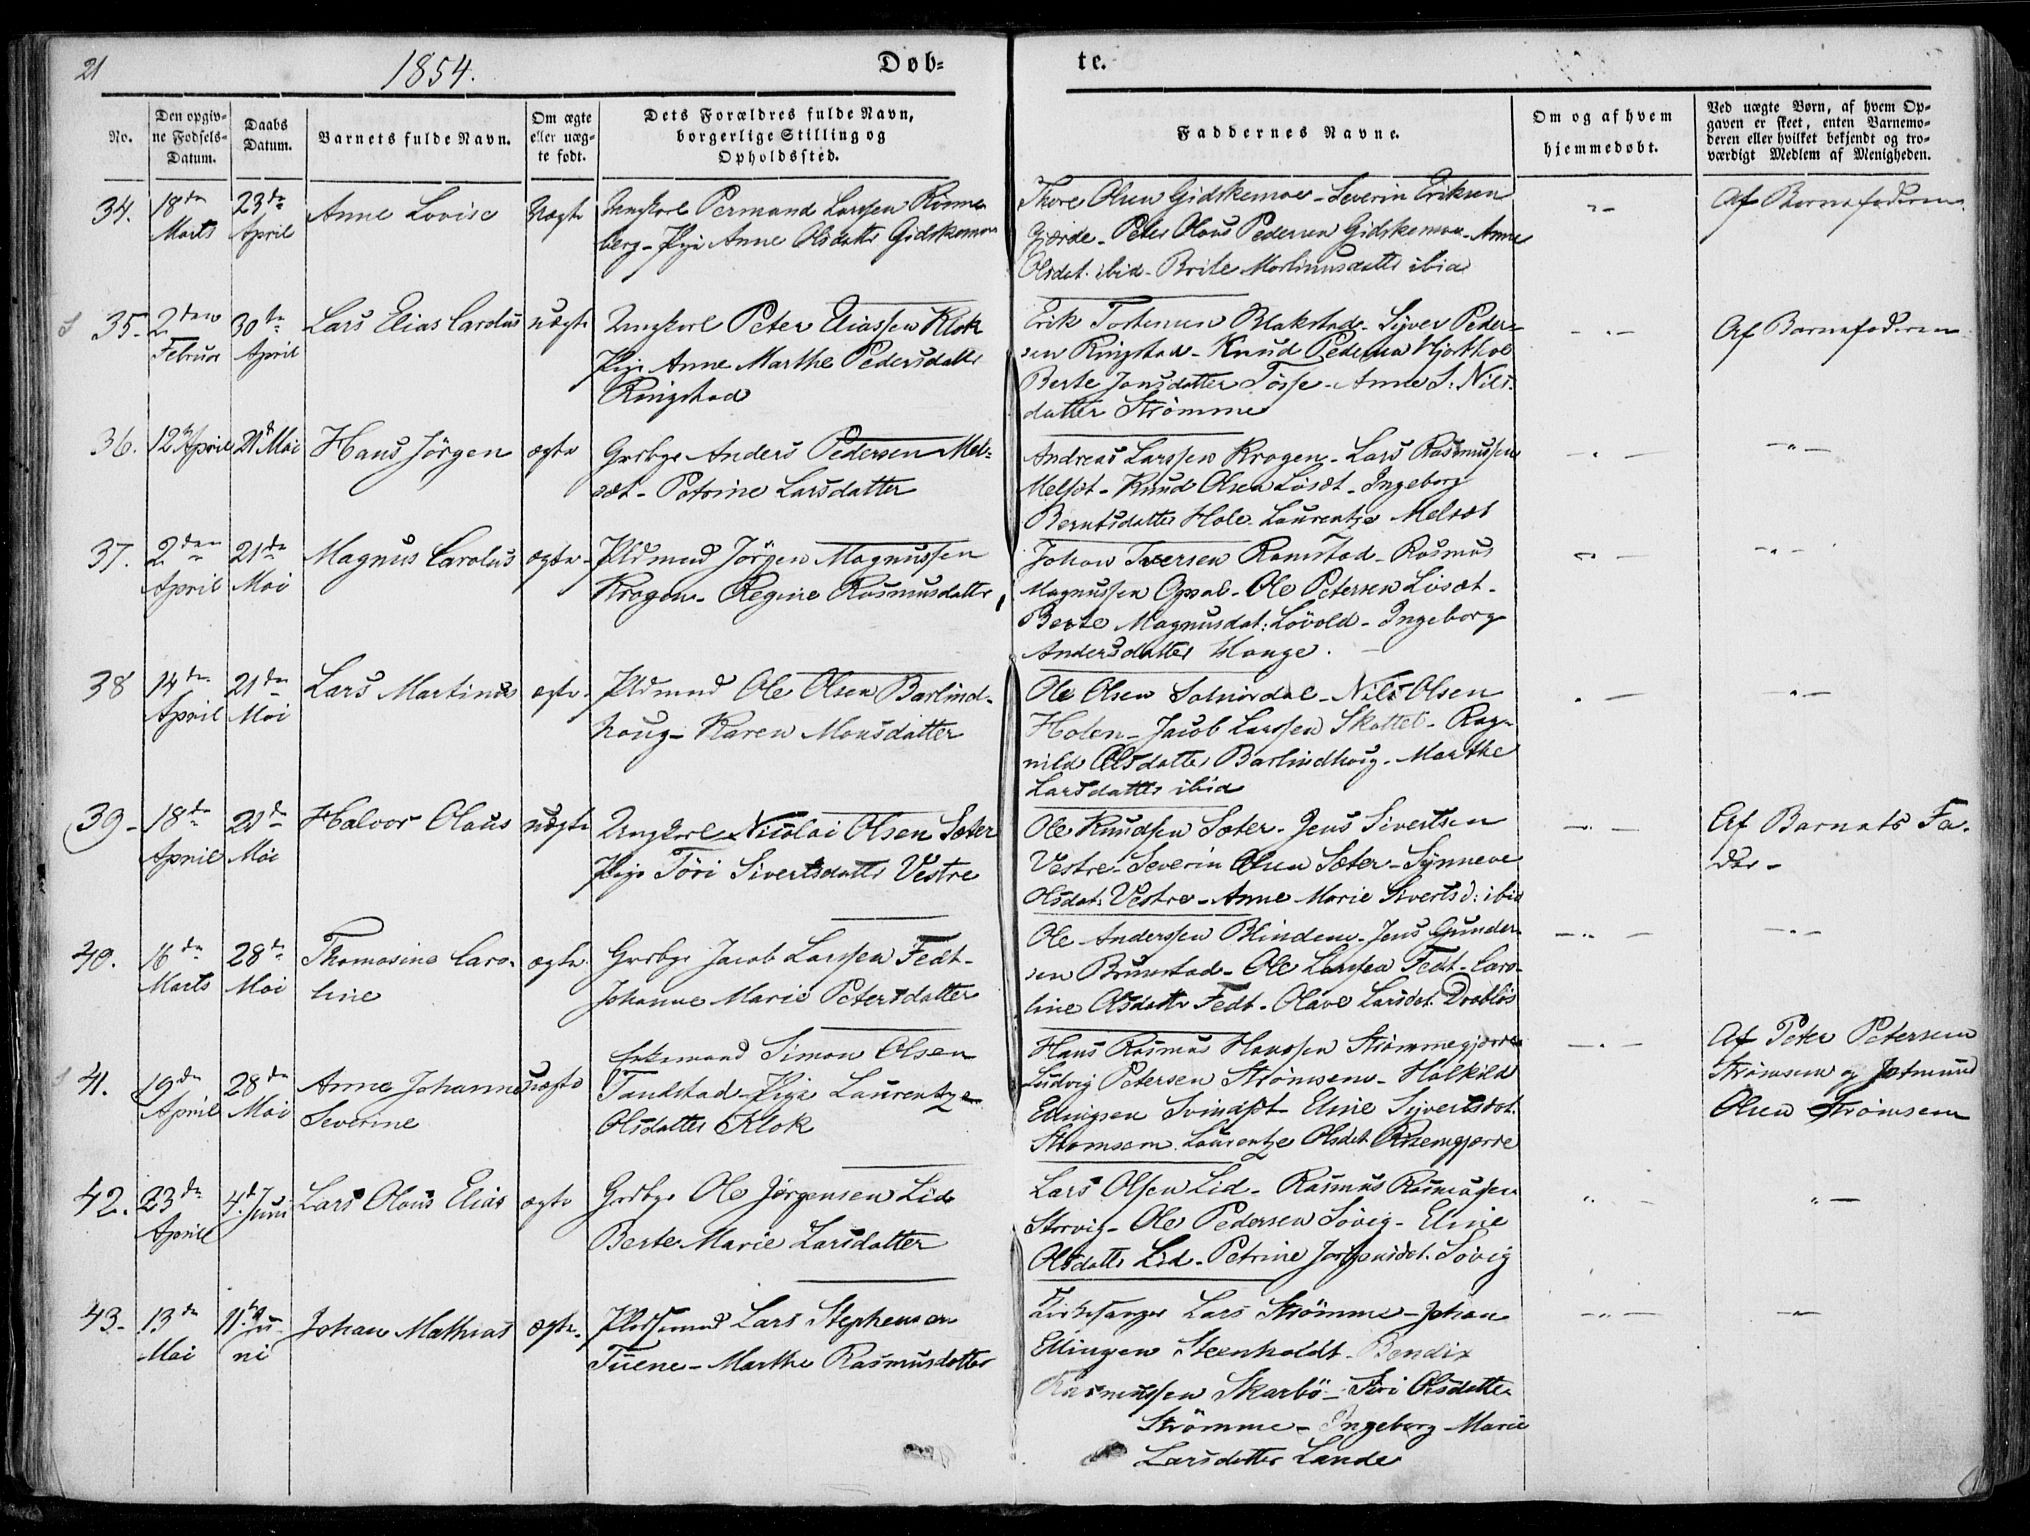 21
1854.
Døb-
te.
No.
Den opgiv-
ne Fødsels-
Datum.
Daabs
Datum.
Barnets fulde Navn.
Om ægte
eller uæg-
te født.
Dets Forældres fulde Navn,
borgerlige Stilling og
Opholdssted.
Faddernes Navne.
Om og af hvem
hjemmedøbt.
Ved uægte Børn, af hvem Op-
gaven er skeet, enten Barnemo-
deren eller hvilket bekjendt og tro-
værdigt Medlem af Menigheden.
34.
18de
Marts
23de
April
Anne Lovise
Uægte
Ungkarl Permand Larssen Rinne
berg - Pige Anne Olsdatter Gidskemoe
Thore Olsen Gidskemoe - Severin Eriksen
Gjærde - Peter Olaus Pedersen Gidskemoe - Anne
Olsdat. ibid - Brite Martinusdatter ibid
Af Barnefaderen
35.
2den
Februar
30te
April
Lars Elias Carolus
uægte
Ungkarl Peter Eliassen Klok
Pige Anne Marthe Pedersdatter
Ringstad
Erik Torstensen Blakstad - Sjver Peder-
sen Ringstad - Knud Pedersen Hjorthol
Berte Jonsdatter Tosse - Anne S: Nils-
datter Strømme
Af Barnefaderen
36.
12te April
21de Mai
Hans Jørgen
ægte
Grbgr Anders Pedersen Mel-
sæt - Petrine Larsdatter
Andreas Larssen Krogen - Lars Rasmussen
Melsæt - Knud Olsen Løsæt - Ingeborg
Berntsdatter Hole - Laurentze Melsæt
37.
2den
April
21de
Mai
Magnus Carolus
ægte
Pldsmd Jörgen Magnussen
Krogen - Regine Rasmusdatter
Johan Iversen Ramstad - Rasmus
Magnussen Opsal - Ole Petersen Løsæt -
Berte Magnusdat: Løvold - Ingeborg
Andersdatter Hauge.
38
14de
April
21de
Mai
Lars Martinus
ægte
Pldsmd Ole Olsen Barlind-
houg - Karen Monsdatter
Ole Olsen Solnørdal - Nils Olsen
Holen - Jacob Larssen Skottet - Rag-
nild Olsdatter Barlindhoug - Marthe
Larsdatter ibid
39
18de
April
21de
Mai
Halvor Olaus
uægte
Ungkarl Nicolai Olsen Sæter
Pige Töri Sivertsdatter Vestre
Ole Knudsen Sæter - Jens Sivertsen
Vestre - Severin Olsen Sæter - Synneve
Olsdat: Vestre - Anne Marie Sivertsd: ibid
Af Barnets Fa-
der -
40.
16de
Marts
28de
Mai
Thomasine Caro-
line
ægte
Grbgr Jacob Larssen Fedt -
Johanne Marie Petersdatter
Ole Anderssen Blindem - Jens Gunder-
sen Brunstad - Ole Larssen Fedt - Caro-
line Olsdatter Fedt - Olave Larsdat. Drabløs
41.
19de
April
28de
Mai
Anne Johanne
Severine
uægte
Enkemand Simon Olsen
Tandstad - Pige Laurentze
Olsdatter Klok
Hans Rasmus Hanssen Strømmegjerde
Ludvig Petersen Strømsem - Halkild
Ellingsen Svindset - Eline Sjvertsdat.
Strømsem Laurentze Olsdat
Af Peter Petersen
Strømsem og Jetmund
Olsen Strømsem
42.
23de
April
4de Juni
Lars Olaus Elias
ægte
Grdbgr Ole Jørgensen Lid
Berte Marie Larsdatter
Lars Olsen Lid - Rasmus Rasmussen
Storvig - Ole Pedersen Søvig - Eline
Olsdatter Lid - Petrine Jørgensdat. Søvig
43.
13de
Mai
11te Ju-
ni
Johan Mathias
ægte
Pladsmd Lars Stephensen
Tuene - Marthe Rasmusdatter
Kirkesanger Lars Strømme - Johan
Ellingsen Steenholdt - Bendix
Rasmussen Skarbö - Siri Olsdatter
Strömme - Ingeborg Marie
Larsdatter Lande